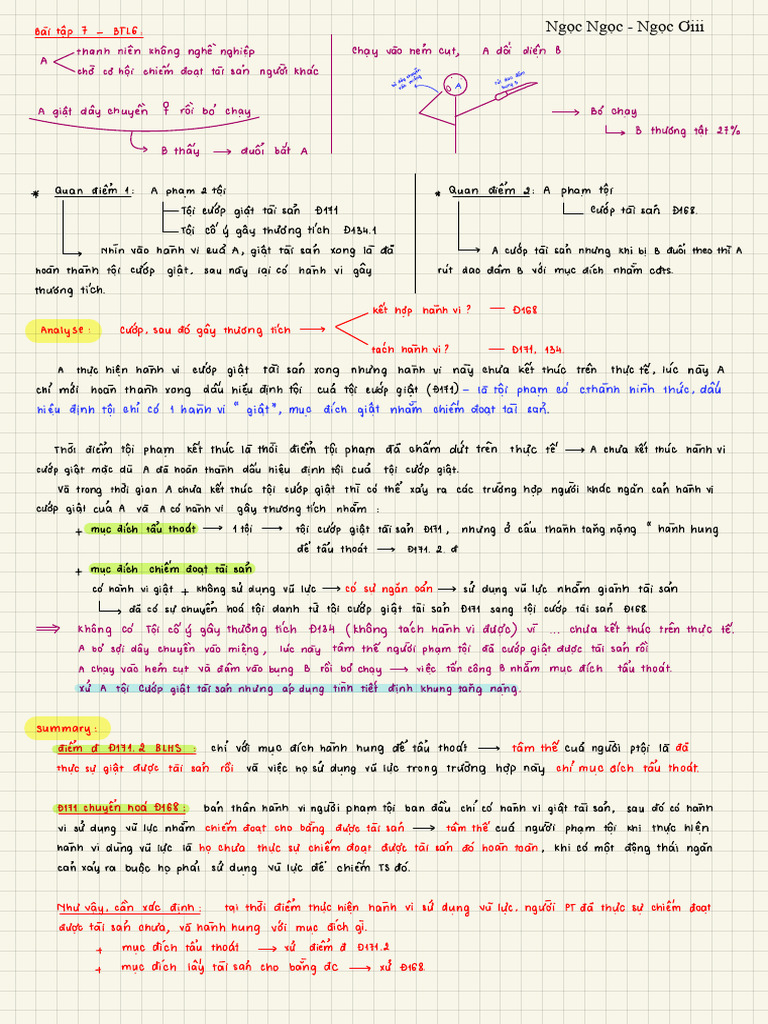 Ngọc Ngọc - Ngọc Ơiii
Bài tập 7 – BTL6:
A
thanh niên không nghề nghiệp
chờ cơ hội chiếm đoạt tài sản người khác
A giật dây chuyền ♀ rồi bỏ chạy
B thấy → đuổi bắt A
chạy vào hẻm cụt, A đối diện B
A
Bỏ chạy
B thương tật 27%
* Quan điểm 1: A phạm 2 tội
Tội cướp giật tài sản Đ171
Tội cố ý gây thương tích Đ134.1
Nhìn vào hành vi của A, giật tài sản xong là đã
hoàn thành tội cướp giật, sau này lại có hành vi gây
thương tích.
* Quan điểm 2: A phạm tội
Cướp tài sản Đ168.
A cướp tài sản nhưng khi bị B đuổi theo thì A
rút dao đâm B với mục đích nhằm cđts.
Analyse: Cướp, sau đó gây thương tích →
kết hợp hành vi? — Đ168
tách hành vi? — Đ171, 134.
A thực hiện hành vi cướp giật tài sản xong nhưng hành vi này chưa kết thúc trên thực tế, lúc này A
chỉ mới hoàn thành xong dấu hiệu định tội của tội cướp giật (Đ171) – là tội phạm có c.thành hình thức, dấu
hiệu định tội chỉ có 1 hành vi "giật", mục đích giật nhằm chiếm đoạt tài sản.
Thời điểm tội phạm kết thúc là thời điểm tội phạm đã chấm dứt trên thực tế → A chưa kết thúc hành vi
cướp giật mặc dù A đã hoàn thành dấu hiệu định tội của tội cướp giật.
Và trong thời gian A chưa kết thúc tội cướp giật thì có thể xảy ra các trường hợp người khác ngăn cản hành vi
cướp giật của A và A có hành vi gây thương tích nhằm :
+ mục đích tẩu thoát → 1 tội → tội cướp giật tài sản Đ171, nhưng ở cấu thành tăng nặng "hành hung
để tẩu thoát → Đ171. 2. đ
+ mục đích chiếm đoạt tài sản
có hành vi giật + không sử dụng vũ lực → có sự ngăn cản → sử dụng vũ lực nhằm giành tài sản
đã có sự chuyển hoá tội danh từ tôi cướp giật tài sản Đ171 sang tội cướp tài sản Đ168.
⇒ Không có Tội cố ý gây thương tích Đ134 (không tách hành vi được) vì ... chưa kết thúc trên thực tế.
A bỏ sợi dây chuyền vào miệng, lúc này tâm thế người phạm tội đã cướp giật được tài sản rồi
A chạy vào hẻm cụt và đâm vào bụng B rồi bỏ chạy → việc tấn công B nhằm mục đích tẩu thoát.
xử A tội Cướp giật tài sản nhưng áp dụng tình tiết định khung tăng nặng.
Summary:
điểm đ Đ171.2 BLHS : chỉ với mục đích hành hung để tẩu thoát → tâm thế của người ptội là đã
thực sự giật được tài sản rồi và việc họ sử dụng vũ lực trong trường hợp này chỉ mục đích tẩu thoát.
Đ171 chuyển hoá Đ168: bản thân hành vi người phạm tội ban đầu chỉ có hành vi giật tài sản, sau đó có hành
vi sử dụng vũ lực nhằm chiếm đoạt cho bằng được tài sản → tâm thế của người phạm tội khi thực hiện
hành vi dùng vũ lực là họ chưa thực sự chiếm đoạt được tài sản đó hoàn toàn, khi có một động thái ngăn
cản xảy ra buộc họ phải sử dụng vũ lực để chiếm TS đó.
Như vậy, cần xác định : tại thời điểm thực hiện hành vi sử dụng vũ lực, người PT đã thực sự chiếm đoạt
được tài sản chưa, và hành hung với mục đích gì.
+ mục đích tẩu thoát → xử điểm đ Đ171.2
+ mục đích lấy tài sản cho bằng đc → xử Đ168.